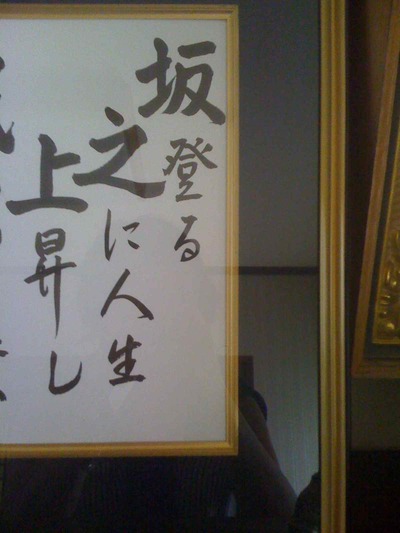 坂登る
之に人生
上昇し